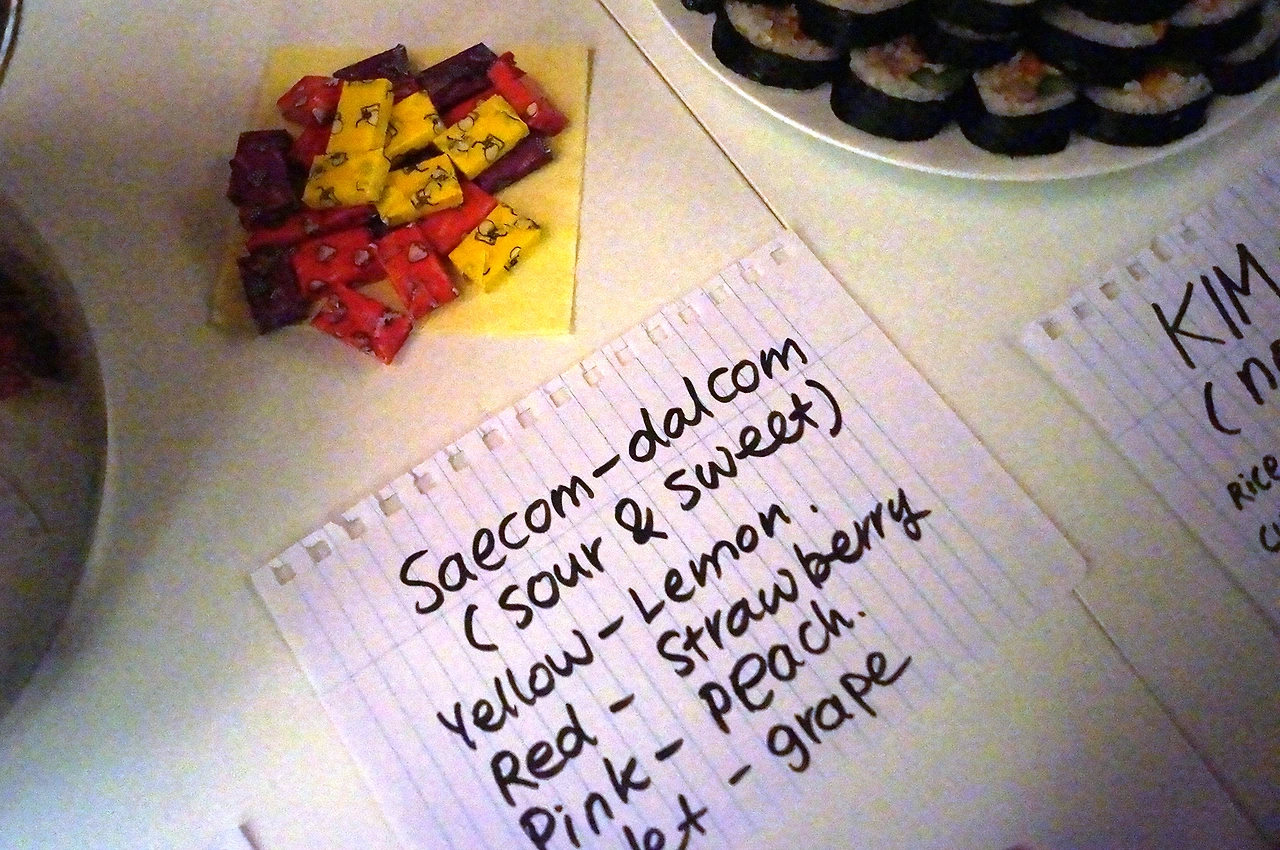 Saecom-dalcom
(sour & sweet)
Yellow - Lemon.
Red - strawberry
Pink - peach.
let - grape
KIM
(
Rice